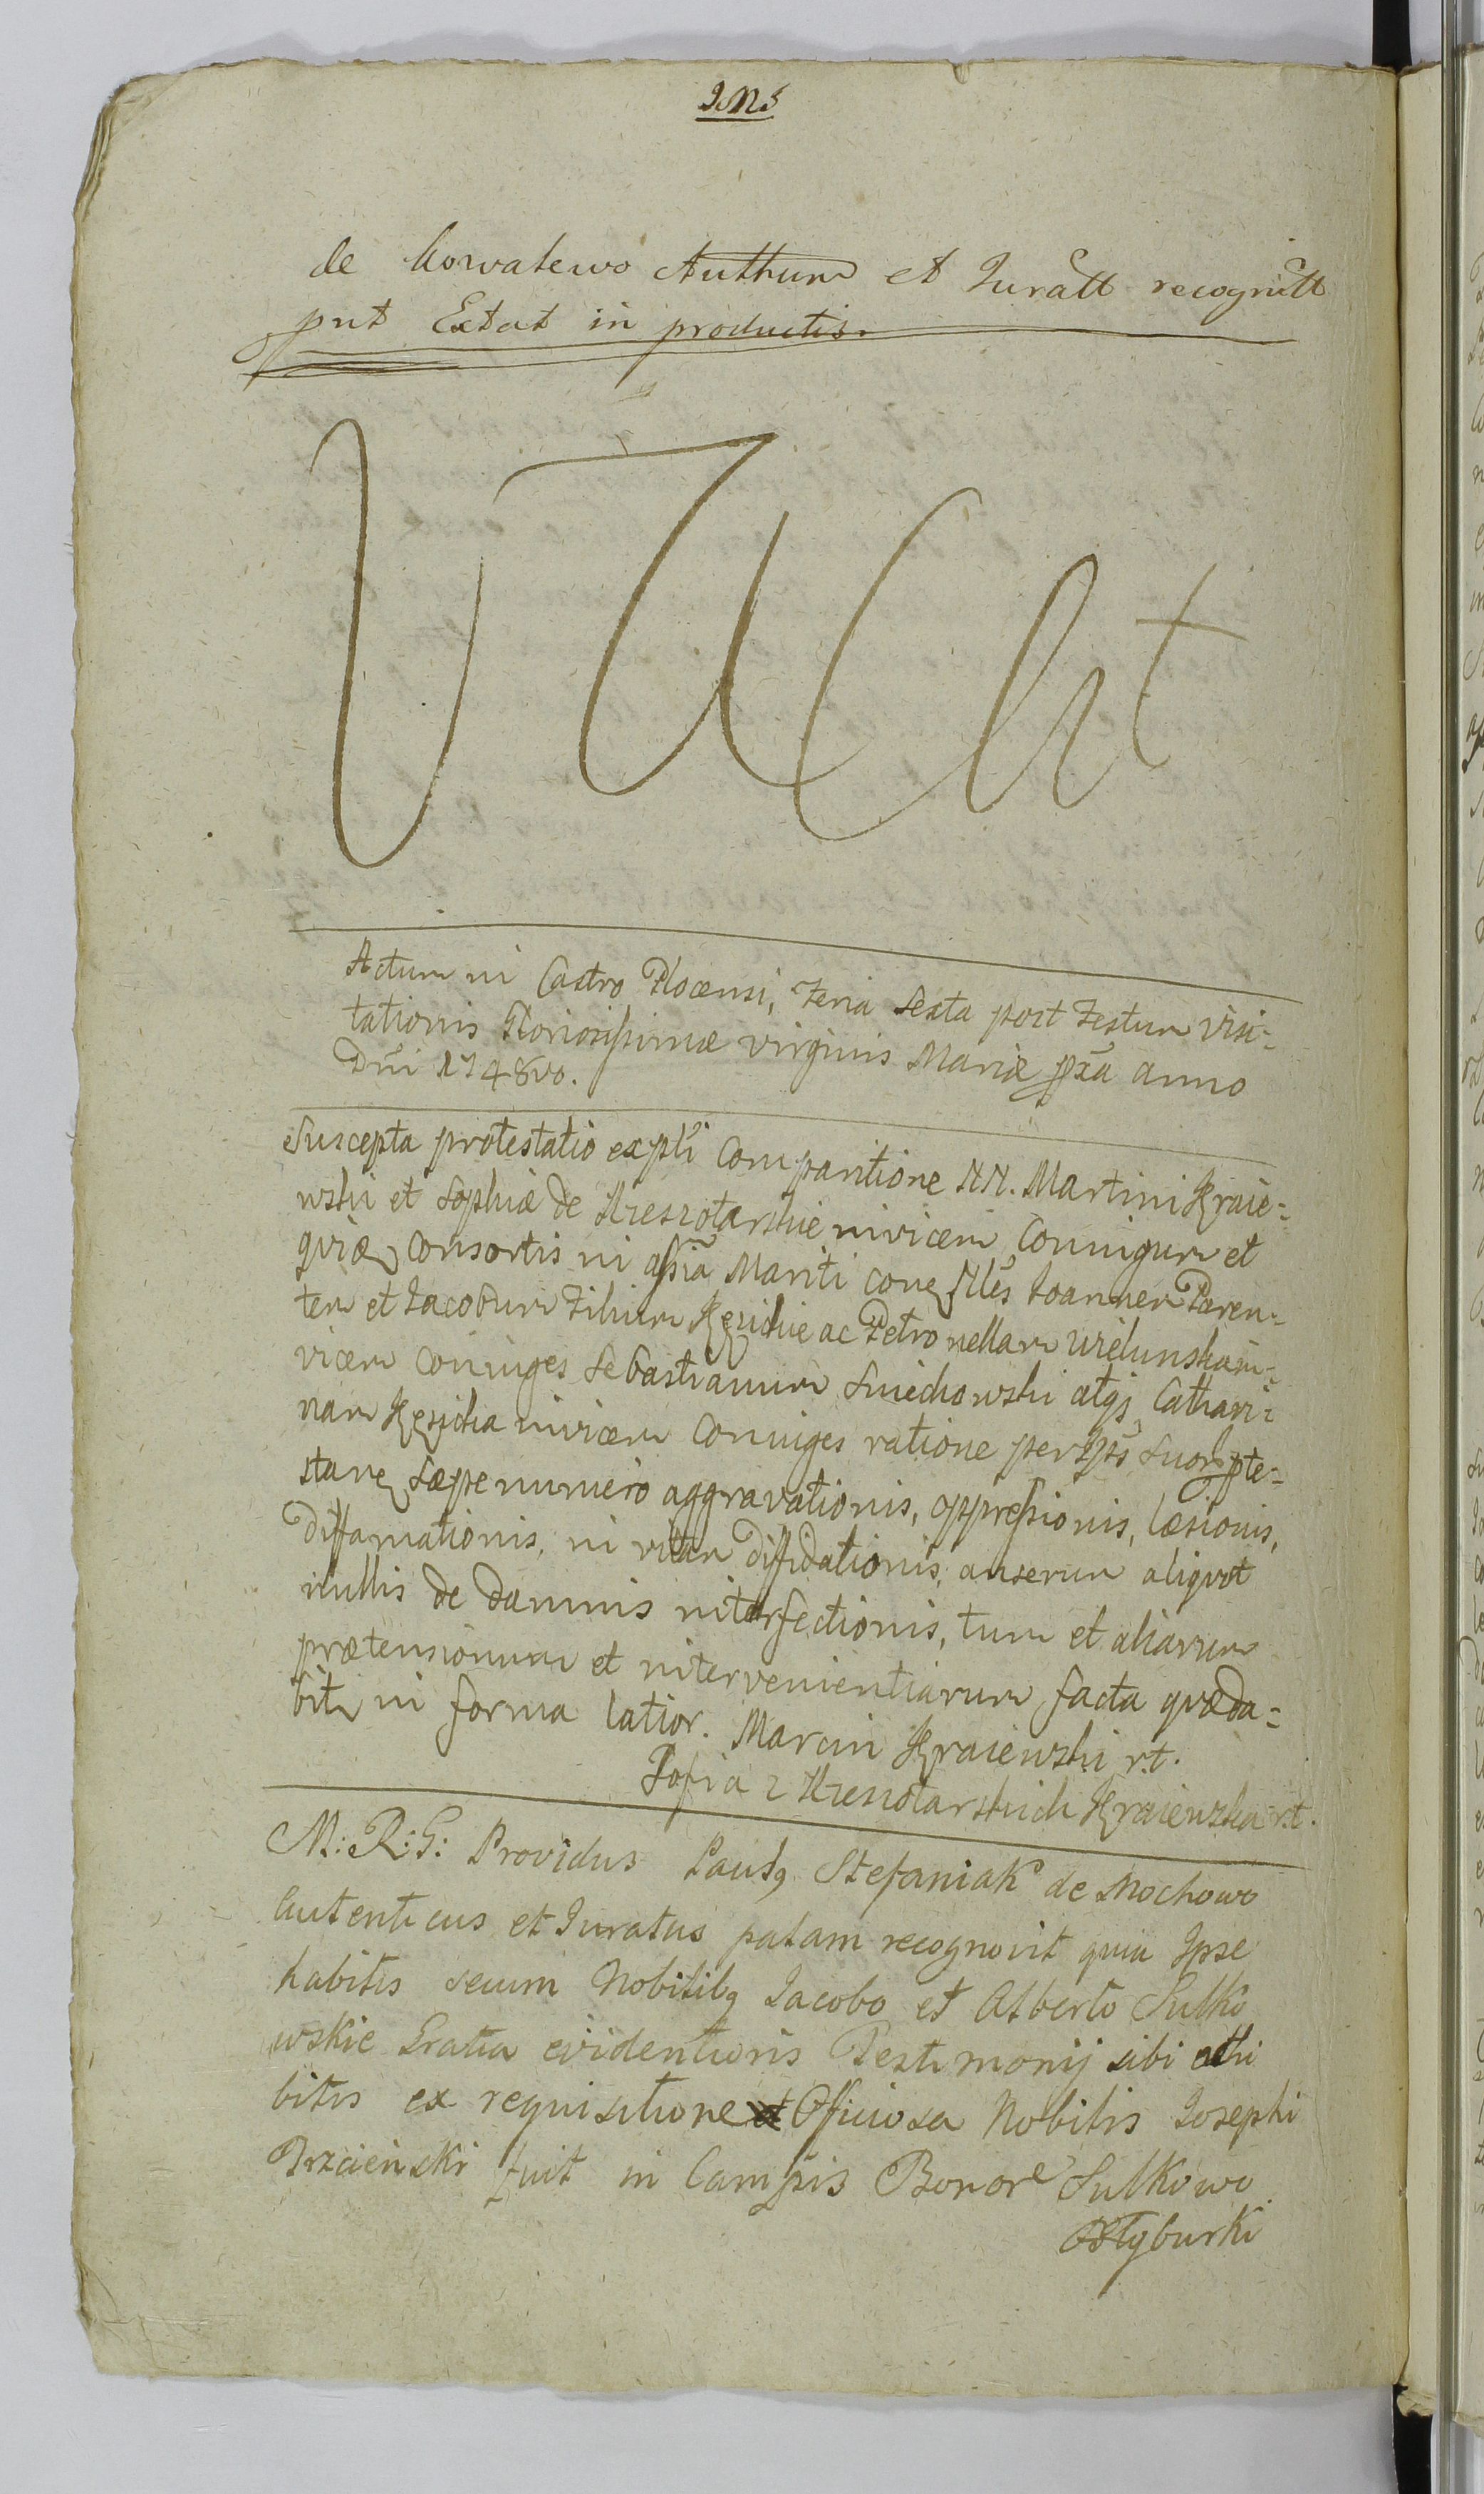 de Kowalewo Authum et Juratt recognitt
put Extat in productis.
VACAt
Actum in Castro Plocensi, Feria Sexta post Festum Visi-
tationis Gloriosissimæ virginis Mariæ pxa anno
Dni 1748vo.
Suscepta protestatio ex pti Comparitione NN. Martini Kraie-
wski et Sophiæ de invicem Coniugum et
Consortis in assia Mariti cone Nles Ioannem Paren-
tem et Iacobum Filium ac Petronellam
vicem Coniuges Sebastianum Smiechowski atqs Cathari-
nam invicem Coniuges ratione per Ipsos suor pte-
stane sæpenumero aggravationis, oppressionis, læsionis,
diffamationis, in vitam diffidationis, anserum aliquot
nullis de damnis interfectionis, tum et aliarum
prætensionum et intervenientiarum facta quæ da-
bitr in forma latior. Marcin Kraiewski rt.
Zofia z Kraiewska rt.
M: R: G: Providus Paulg Stefaniak de Mochowo
Autenticus et Iuratus palam recognovit quia Ipse
habitis secum Nobilibg Iacobo et Alberto Sulko
wskie Gratia evidentioris Testimonij sibi adhi
bitis ex requisitione Officiosa Nobilis Iosephi
fuit in Campis Bonor Sulkowo